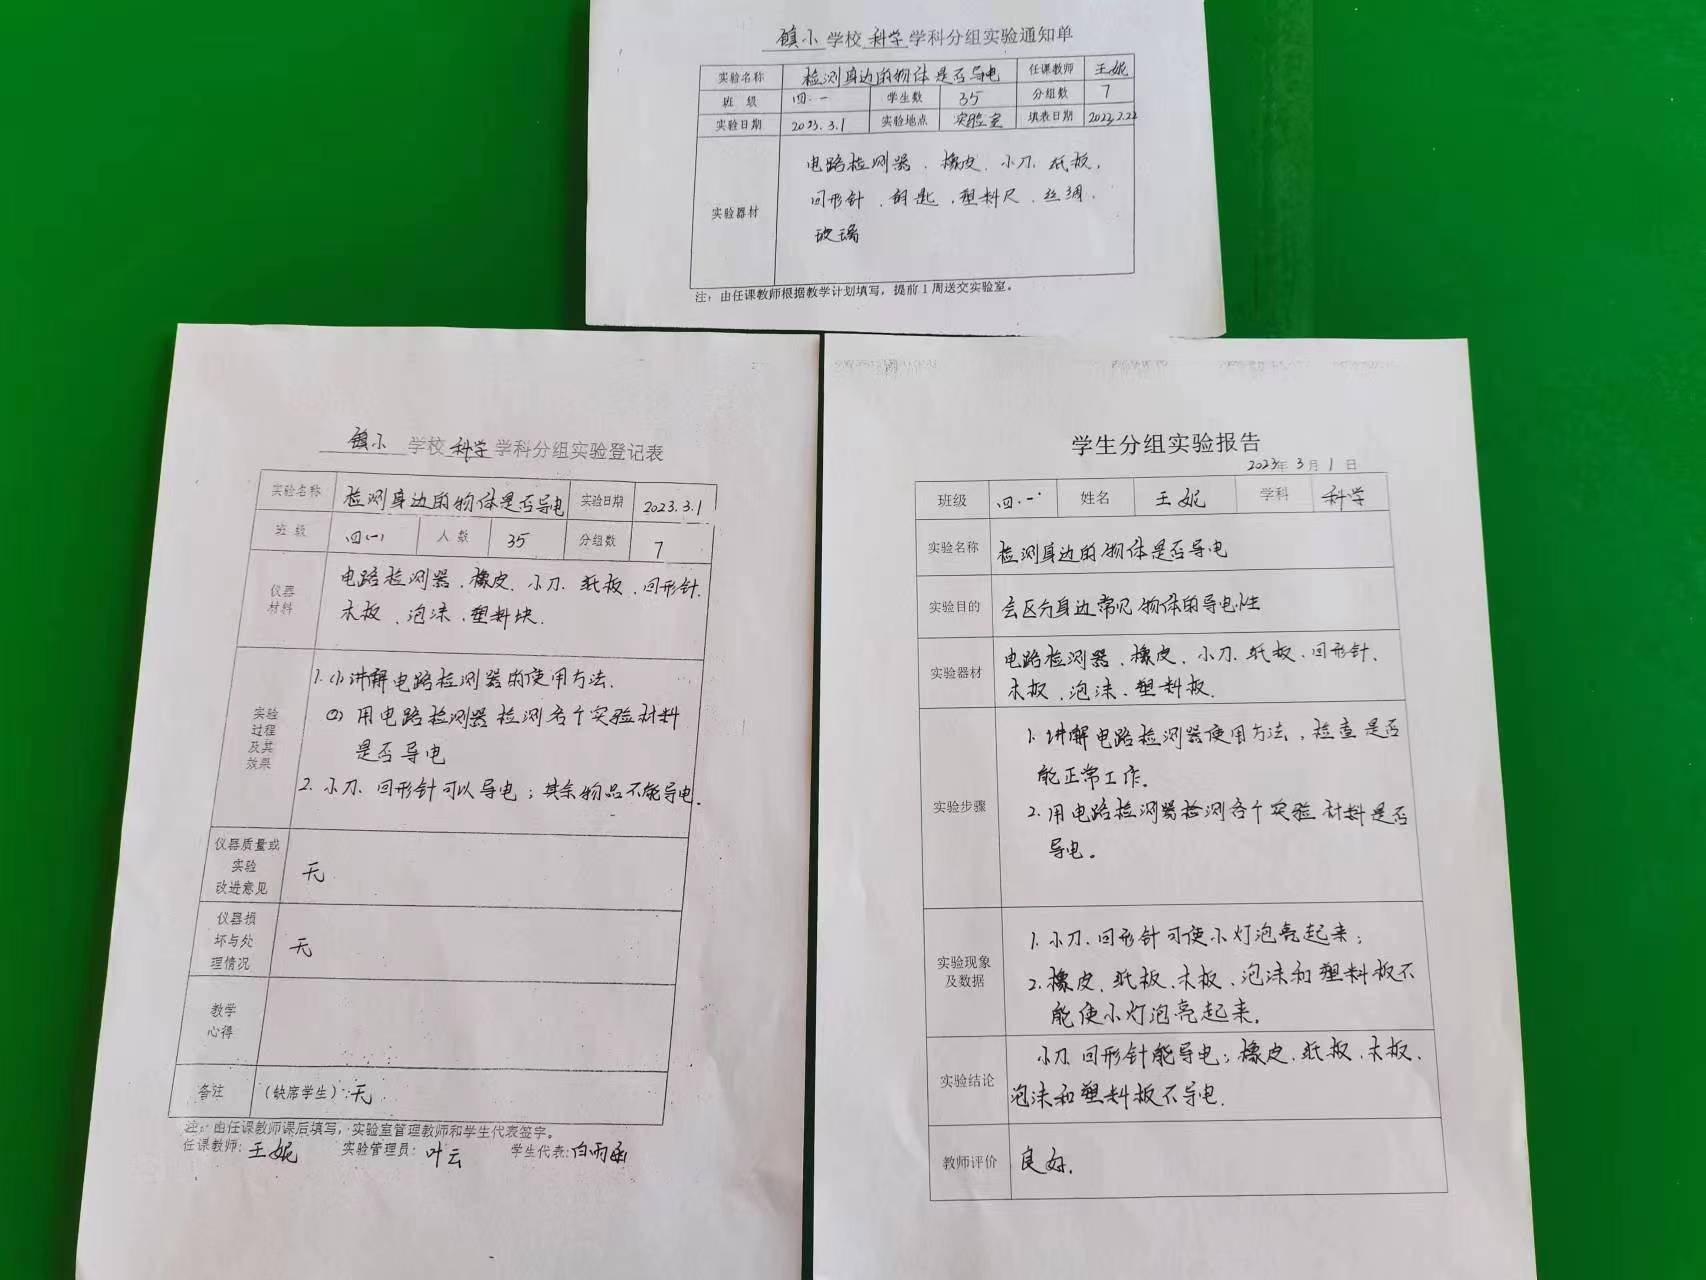 镇小学校科学学科分组实验通知单
实验名称 检测身边的物体是否导电 任课教师 王妮
班 级 四.一 学生数 35 分组数 7
实验日期 2023.3.1 实验地点 实验室 填表日期 2023.2.22
实验器材
电路检测器、橡皮、小刀、纸板、
回形针、钥匙、塑料尺、丝绸、
玻璃
注：由任课教师根据教学计划填写，提前1周送交实验室。
镇小 学校科学学科分组实验登记表
实验名称 检测身边的物体是否导电 实验日期 2023.3.1
班 级 四(一) 人 数 35 分组数 7
仪器
材料
电路检测器、橡皮、小刀、纸板、回形针、
木板、泡沫、塑料块.
实验
过程
及其
效果
1.(1)讲解电路检测器的使用方法.
(2)用电路检测器检测各个实验材料
是否导电
2.小刀、回形针可以导电；其余物品不能导电.
仪器质量或
实验
改进意见
无
仪器损
坏与处
理情况
无
教学
心得
备注 (缺席学生):无
注：由任课教师课后填写，实验室管理教师和学生代表签字。
任课教师: 王妮 实验管理员: 叶云 学生代表:白雨函
学生分组实验报告
2023年3月1日
班级 四.一 姓名 王妮 学科 科学
实验名称 检测身边的物体是否导电
实验目的 会区分身边常见物体的导电性
实验器材
电路检测器、橡皮、小刀、纸板、回形针、
木板、泡沫、塑料板.
实验步骤
1.讲解电路检测器使用方法，检查是否
能正常工作.
2.用电路检测器检测各个实验材料是否
导电。
实验现象
及数据
1.小刀、回形针可使小灯泡亮起来；
2.橡皮、纸板、木板、泡沫和塑料板不
能使小灯泡亮起来.
实验结论
小刀、回形针能导电；橡皮、纸板、木板、
泡沫和塑料板不导电.
教师评价 良好.